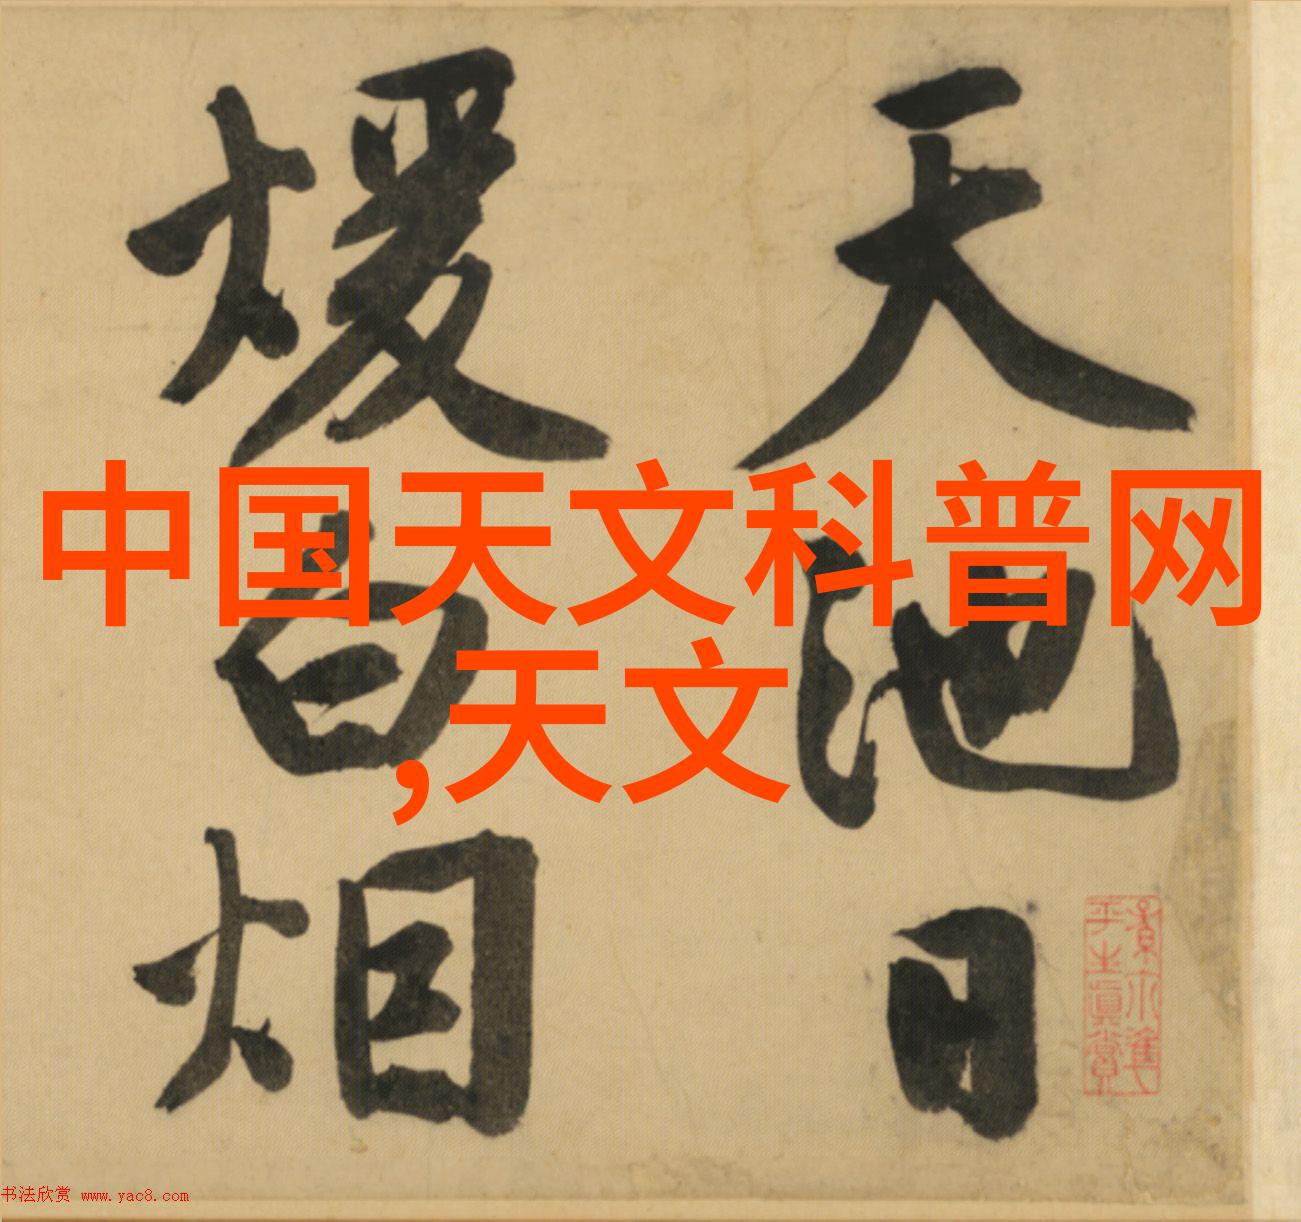 中国天文科普网
,天文
天池日
煖白烟
平生真賞
书法欣赏 www.yac8.com